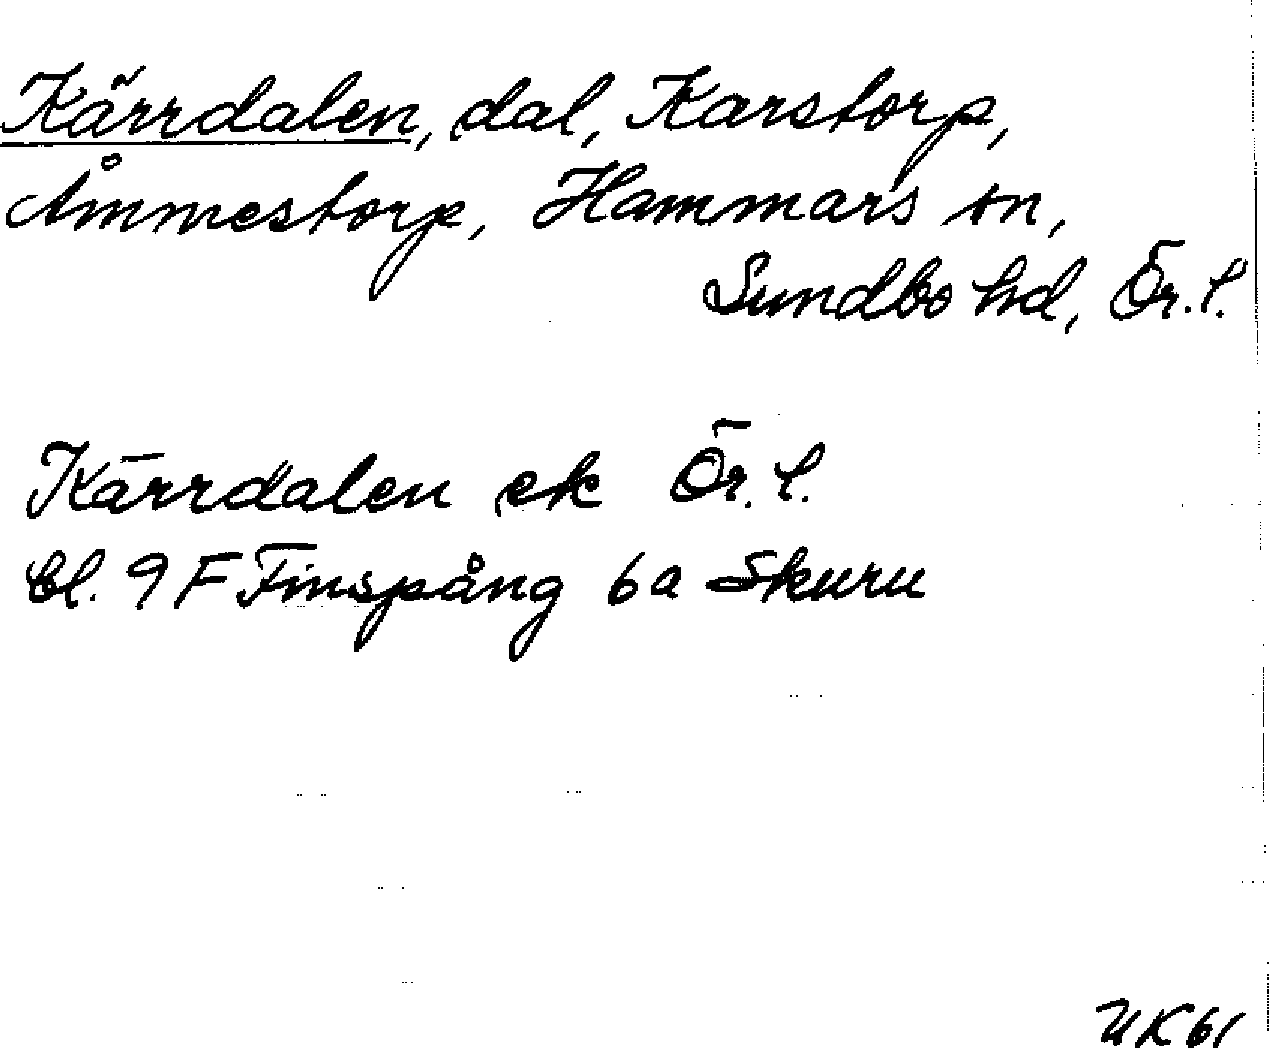 Kärrdalen, dal, Karstorp,
Åmmestorp, Hammars sn,
Sundbo hd, Ör. l.
Kärrdalen ek Ör. l.
bl. 9F Finspång 6a Skuru
UK61